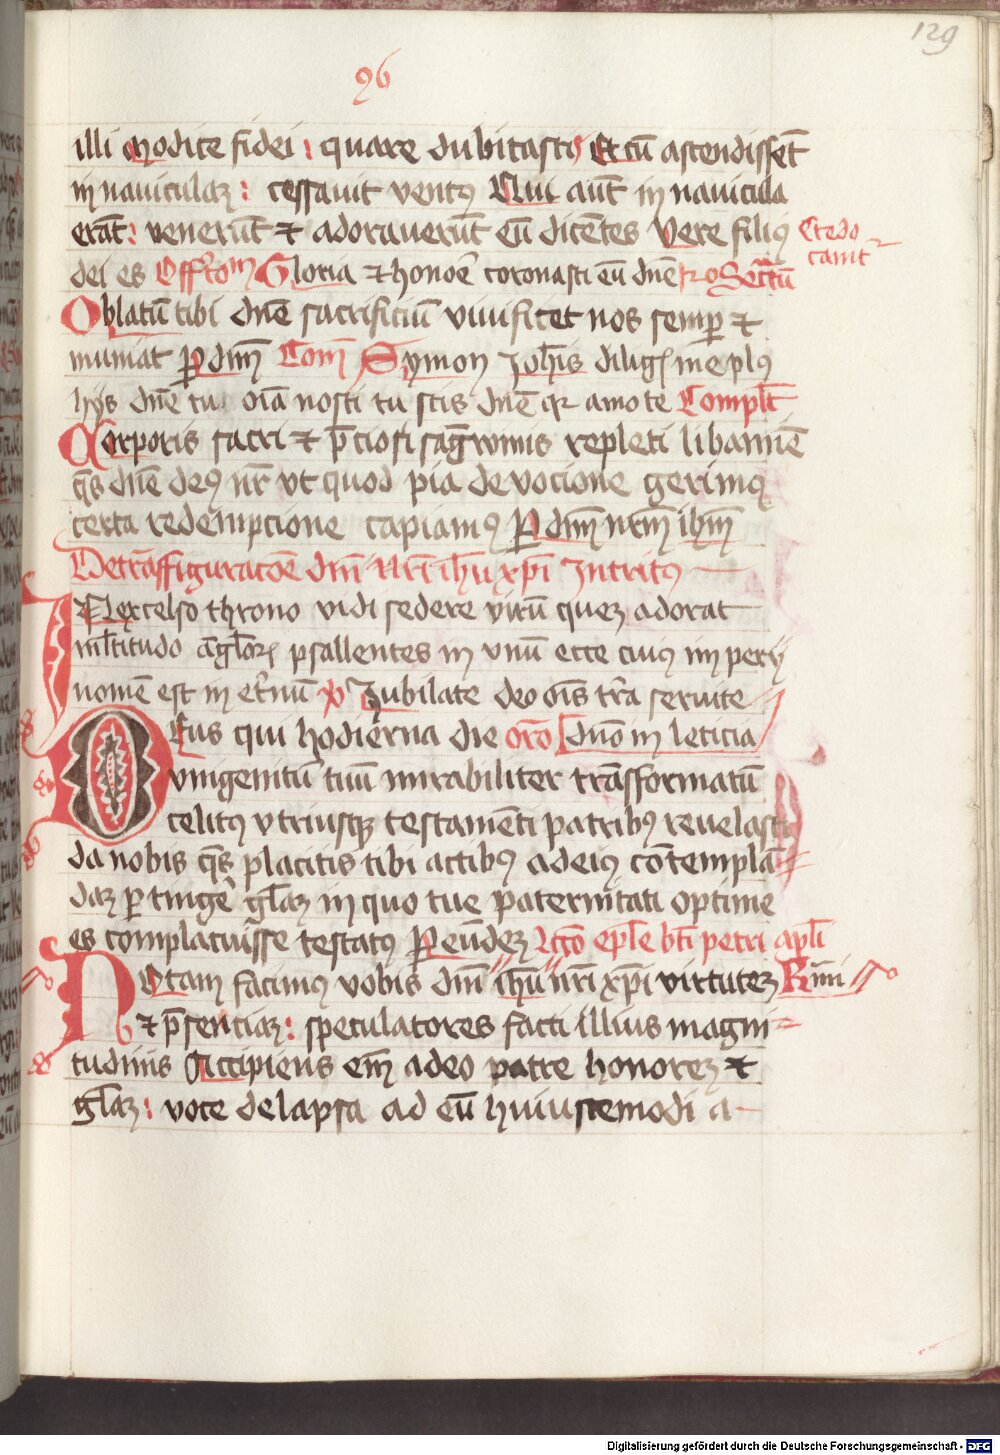 129
96
illi Modice fidei : quare dubitasti Et cū ascendissēt
in nauiculaꝫ : cessauit ventꝰ Qui aūt in nauicula
erāt : venerūt ⁊ adorauerūt eū dicētes Vere filiꝰ Credo
canit
dei es Offʳtoᵐ Gloria ⁊ honoꝛē coronasti eū dn̄e Secᵃtū
Oblatū tibi dn̄e sacrificiū viuificet nos semꝑ ⁊
muniat ꝑ dn̄m Com̄ Symon Joh̄is diligꝭ me plꝰ
hijs dn̄e tu oīa nosti tu scis dn̄e qꝛ amo te Complᵗ
Corporis sacri ⁊ p̄ciosi sāgwinis repleti libamīe
q̄s dn̄e deꝰ nr̄ vt quod pia deuocione gerimꝰ
certa redempcione capiamꝰ ꝑ dn̄m nr̄m ih̄m
De trāsfiguracōe dn̄i nr̄i ih̄u xp̄i Introitꝰ
IN excelso throno vidi sedere virū queꝫ adorat
ml̄titudo āgl̄oꝝ psallentes in vnū ecce cuiꝰ imperij
nomē est in et̄nū v̄ Jubilate deo oīs tr̄a seruite
DEus qui hodierna die or̄o dn̄o in leticia
vnigenitū tuū mirabiliter trāsformatū
celitꝰ vtriusqꝫ testamēti patribꝰ reuelasti
da nobis q̄s placitis tibi actibꝰ ad eiꝰ cōtemplā
daꝫ ꝑtingē gl̄iaꝫ in quo tue paternitati optime
es complacuisse testatꝰ ꝑ eūdeꝫ Lc̄co ep̄le bt̄i petri apl̄i
NOtam facimꝰ vobis dn̄i ih̄u nr̄i xp̄i virtuteꝫ Kn̄ni
⁊ p̄senciaꝫ : speculatores facti illius magni
tudinis Accipiens em̄ a deo patre honoreꝫ ⁊
gl̄iaꝫ : voce delapsa ad eū huiuscemodi a
Digitalisierung gefördert durch die Deutsche Forschungsgemeinschaft - DFG